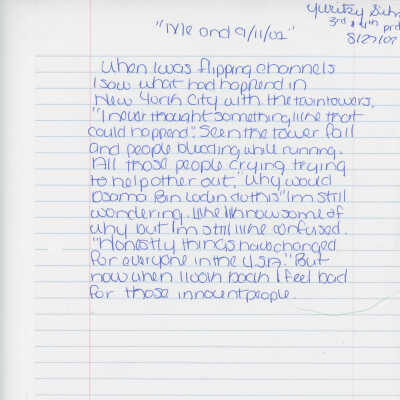 Yuritzy
3rd & 4th prd
8/27/09
"Me and 9/11/01"
When I was flipping channels
I saw what had happend in
New York City with the twin towers.
"I never thought something like that
could happend". Seen the tower fall
and people bleeding, while running.
All those people crying trying
to help other out," why would
Osama Bin Ladin do this" Im still
wondering. like I know some of
why but I'm still like confused.
"Honestly things have changed
for everyone in the U.S.A." But
now when I look back I feel bad
for those innocent people.